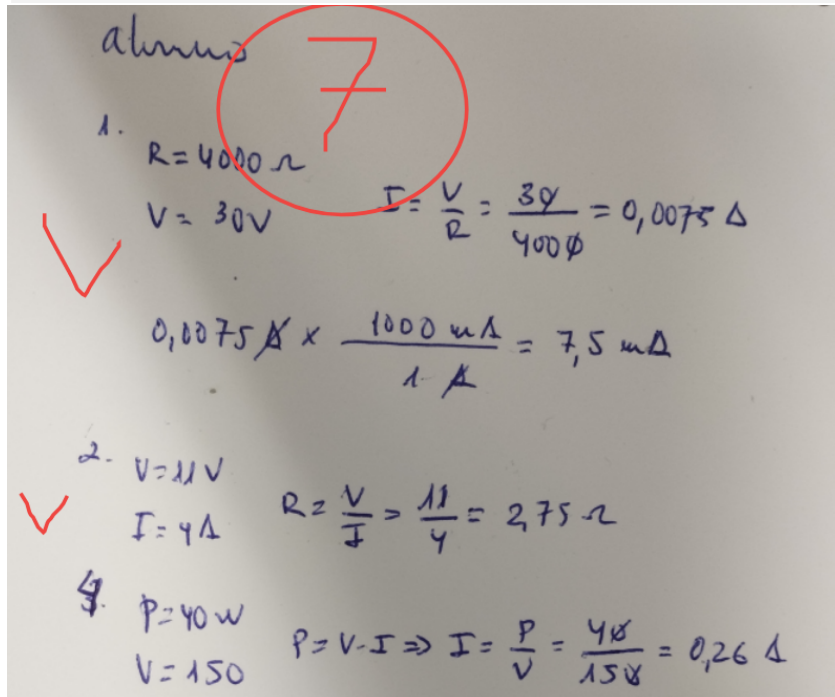 alumno
7
1.
R = 4000 Ω
V = 30V
I = V/R = 30/4000 = 0,0075 A
0,0075 A x 1000 mA / 1 A = 7,5 mA
2.
V = 11 V
I = 4A
R = V/I = 11/4 = 2,75 Ω
4.
P = 40 W
V = 150
P = V·I ⇒ I = P/V = 40/150 = 0,26 A